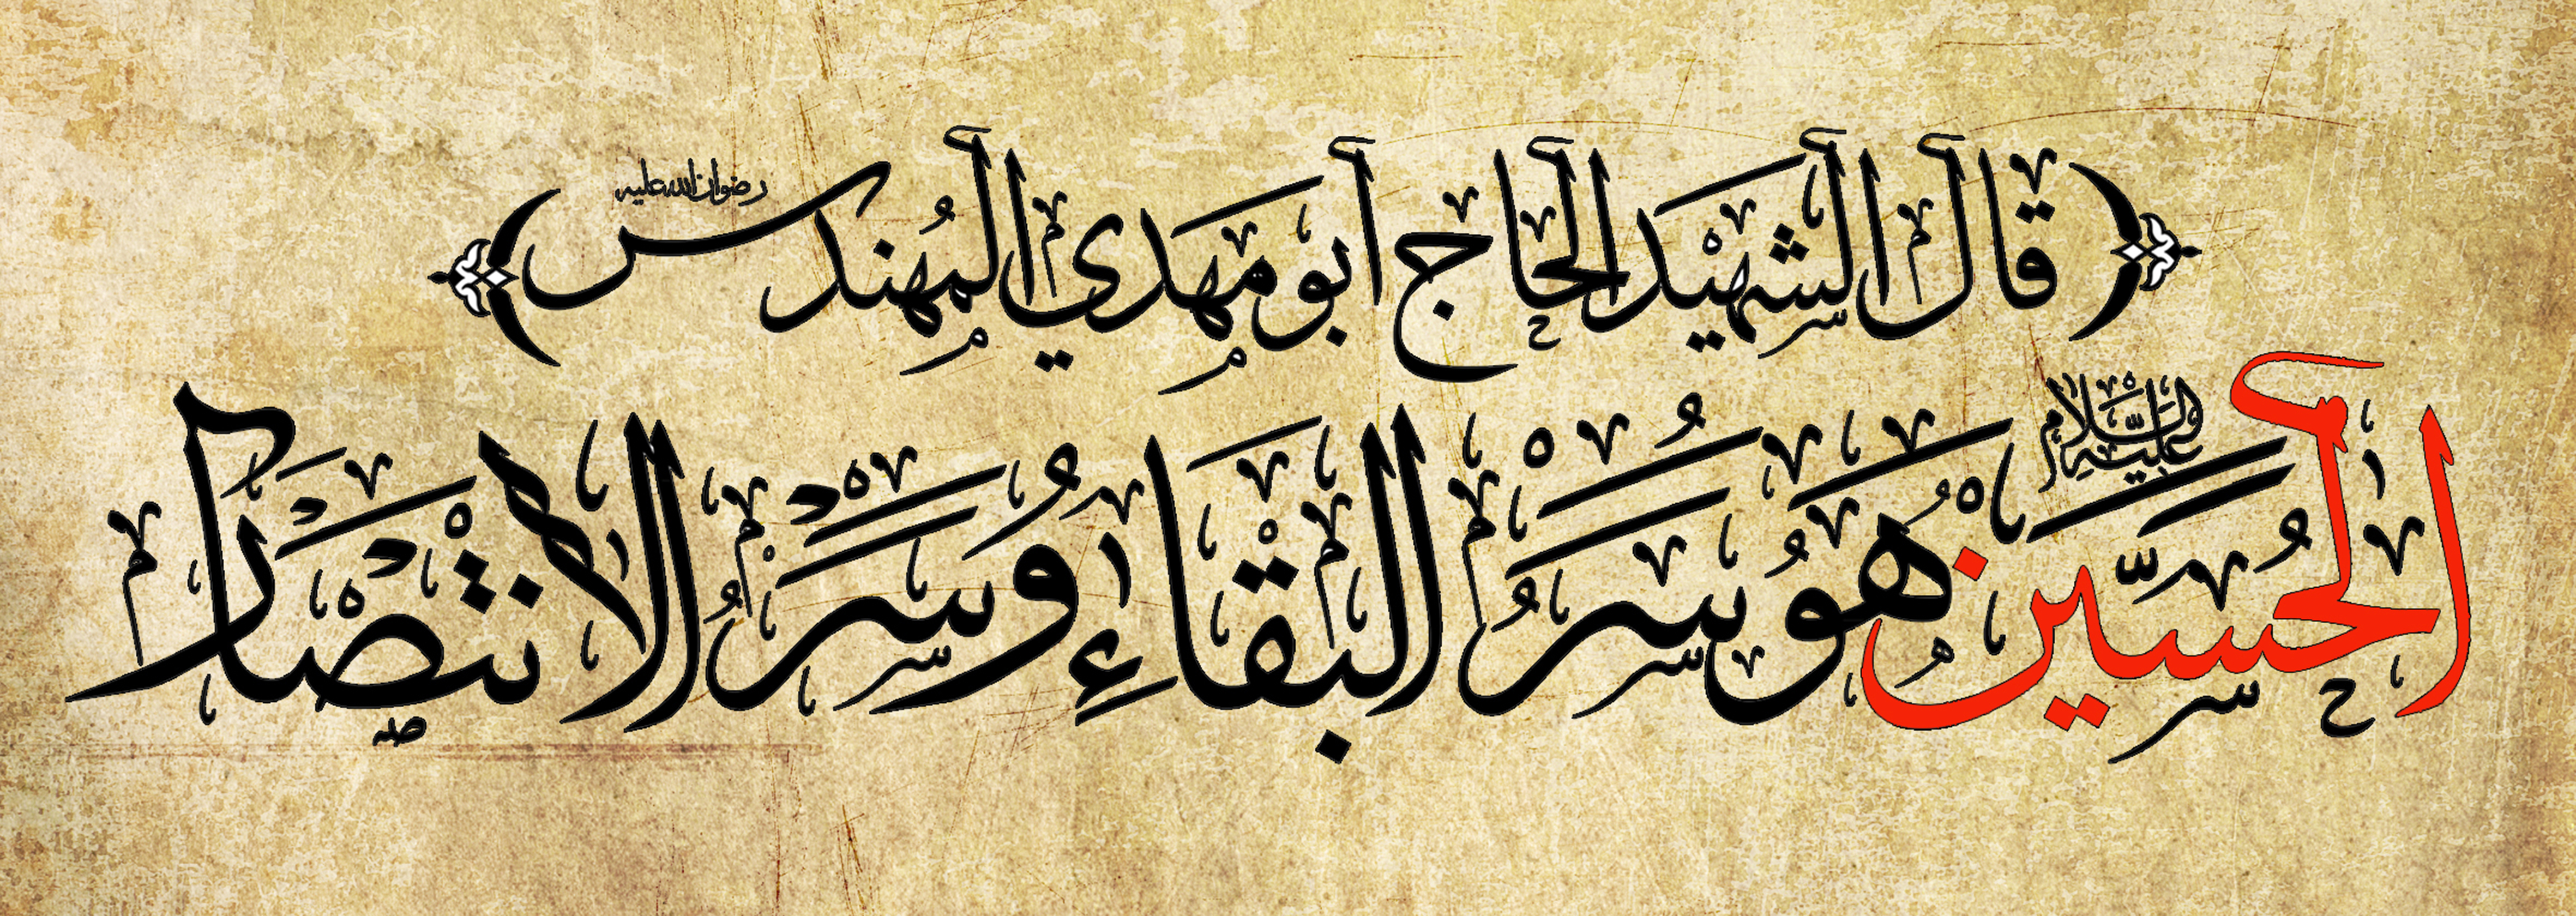 قال الشهيد الحاج أبو مهدي المهندس رضوان الله عليه
الحسين عليه السلام هو سر البقاء وسر الانتصار